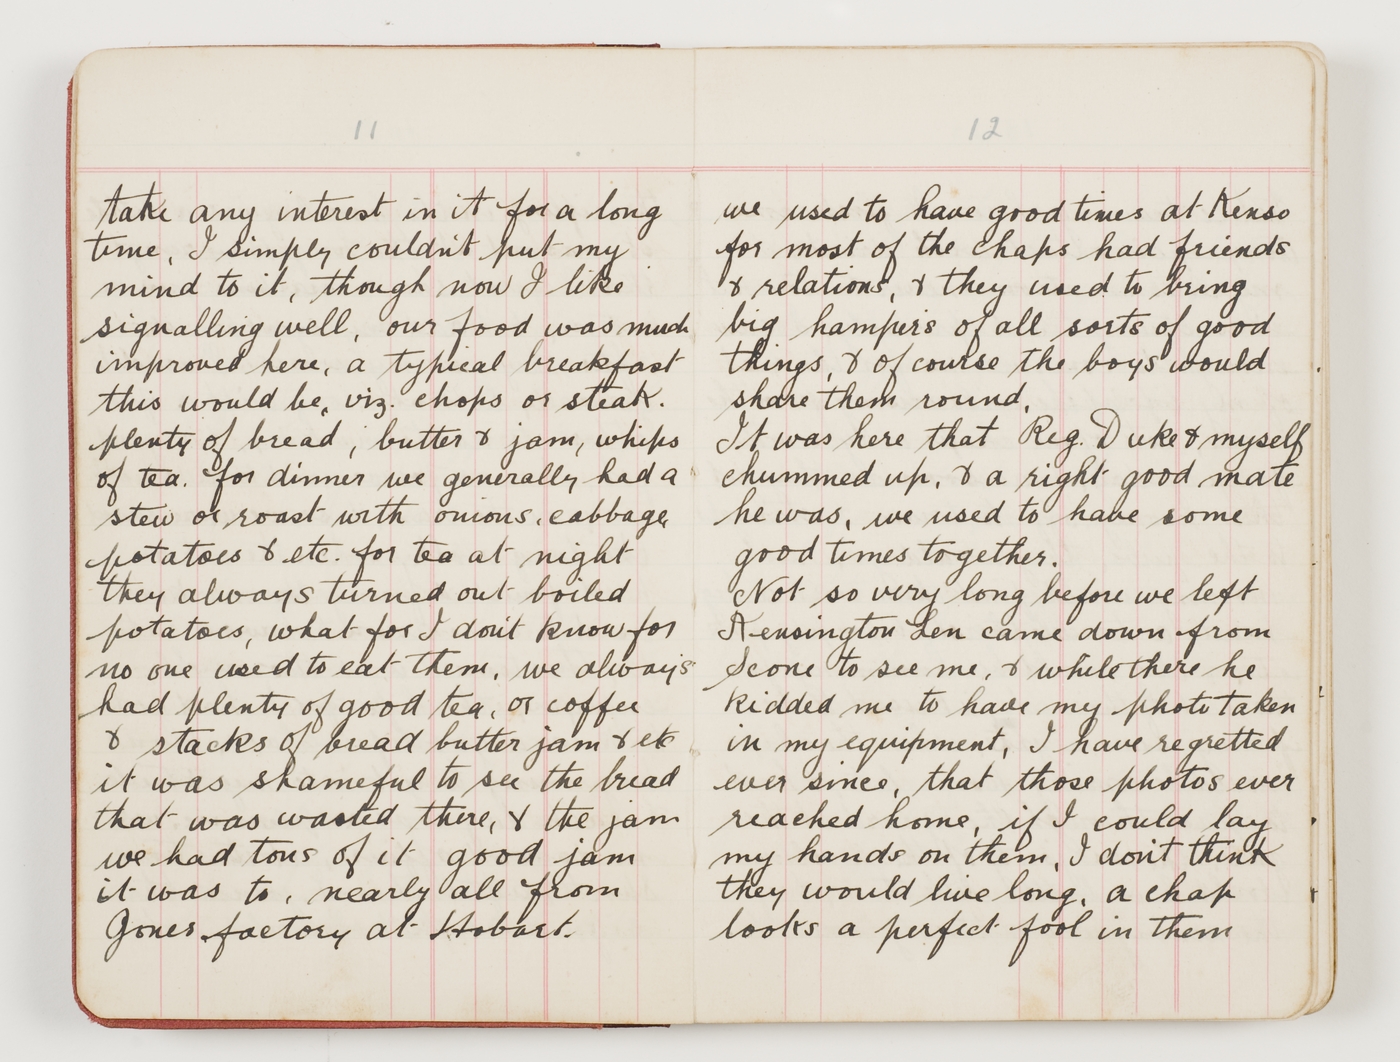 11
take any interest in it for a long
time, I simply couldn't put my
mind to it, though now I like
signalling well, our food was much
improved here, a typical breakfast
this would be, viz. chops or steak.
plenty of bread, butter & jam, whips
of tea. for dinner we generally had a
stew or roast with onions, cabbage,
potatoes & etc. for tea at night
they always turned out boiled
potatoes, what for I don't know for
no one used to eat them, we always
had plenty of good tea, or coffee
& stacks of bread butter jam & etc
it was shameful to see the bread
that was wasted there, & the jam
we had tons of it good jam
it was to, nearly all from
Jones factory at Hobart.
12
we used to have good times at Kenso
for most of the chaps had friends
& relations, & they used to bring
big hampers of all sorts of good
things, & of course the boys would
share them round,
It was here that Reg. Duke & myself
chummed up, & a right good mate
he was, we used to have some
good times together.
Not so very long before we left
Kensington Len came down from
Scone to see me, & while there he
kidded me to have my photo taken
in my equipment, I have regretted
ever since, that those photos ever
reached home, if I could lay
my hands on them, I don't think
they would live long, a chap
looks a perfect fool in them